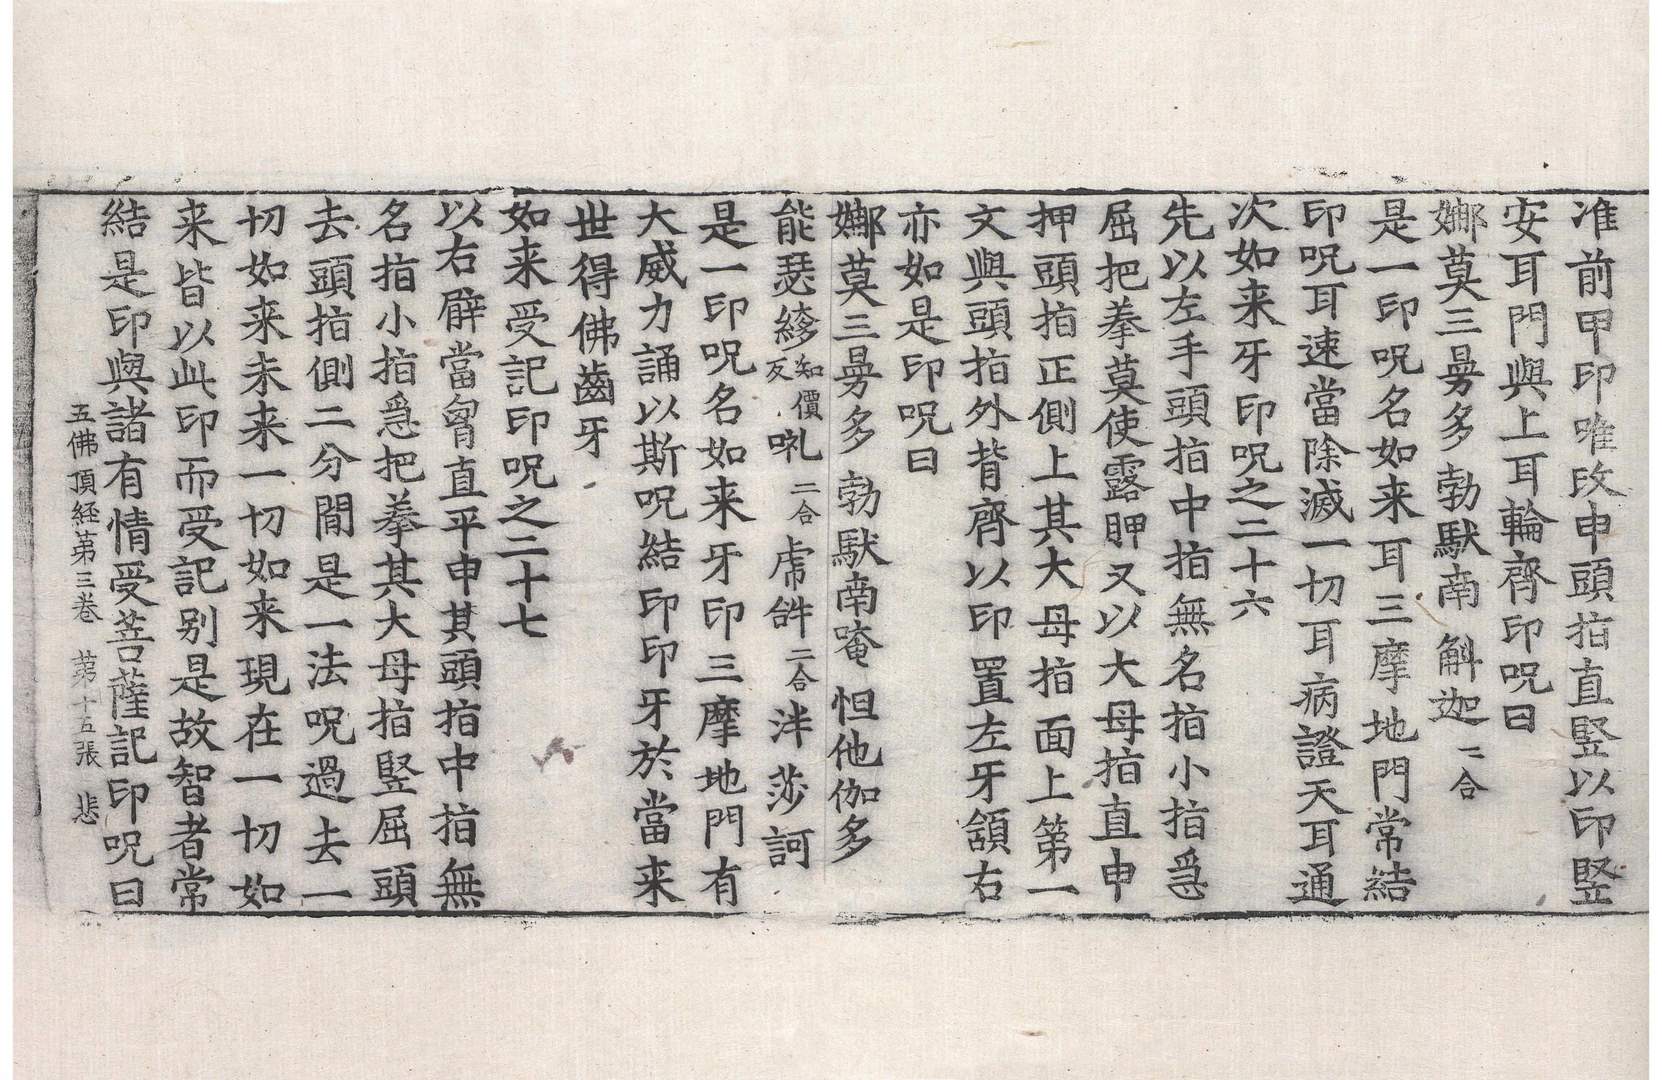 准前甲印唯改申頭指直竪以印竪
安耳門與上耳輪齊印呪曰
娜莫三曼多勃馱南斛迦二合
是一印呪名如来耳三摩地門常結
印呪耳速當除滅一切耳病證天耳通
次如来牙印呪之二十六
先以左手頭指中指無名指小指急
屈把拳莫使露胛又以大母指直申
押頭指正側上其大母指面上第一
文與頭指外背齊以印置左牙頷右
亦如是印呪曰
娜莫三曼多勃馱南唵怛他伽多
能瑟縿知價反㘑二合虎𤙖二合泮莎訶
是一印呪名如来牙印三摩地門有
大威力誦以斯呪結印印牙於當来
世得佛齒牙
如来受記印呪之二十七
以右臂當胷直平申其頭指中指無
名指小指急把拳其大母指竪屈頭
去頭指側二分間是一法呪過去一
切如来未来一切如来現在一切如
来皆以此印而受記别是故智者常
結是印與諸有情受菩薩記印呪曰
五佛頂経第三卷 第十五張 悲